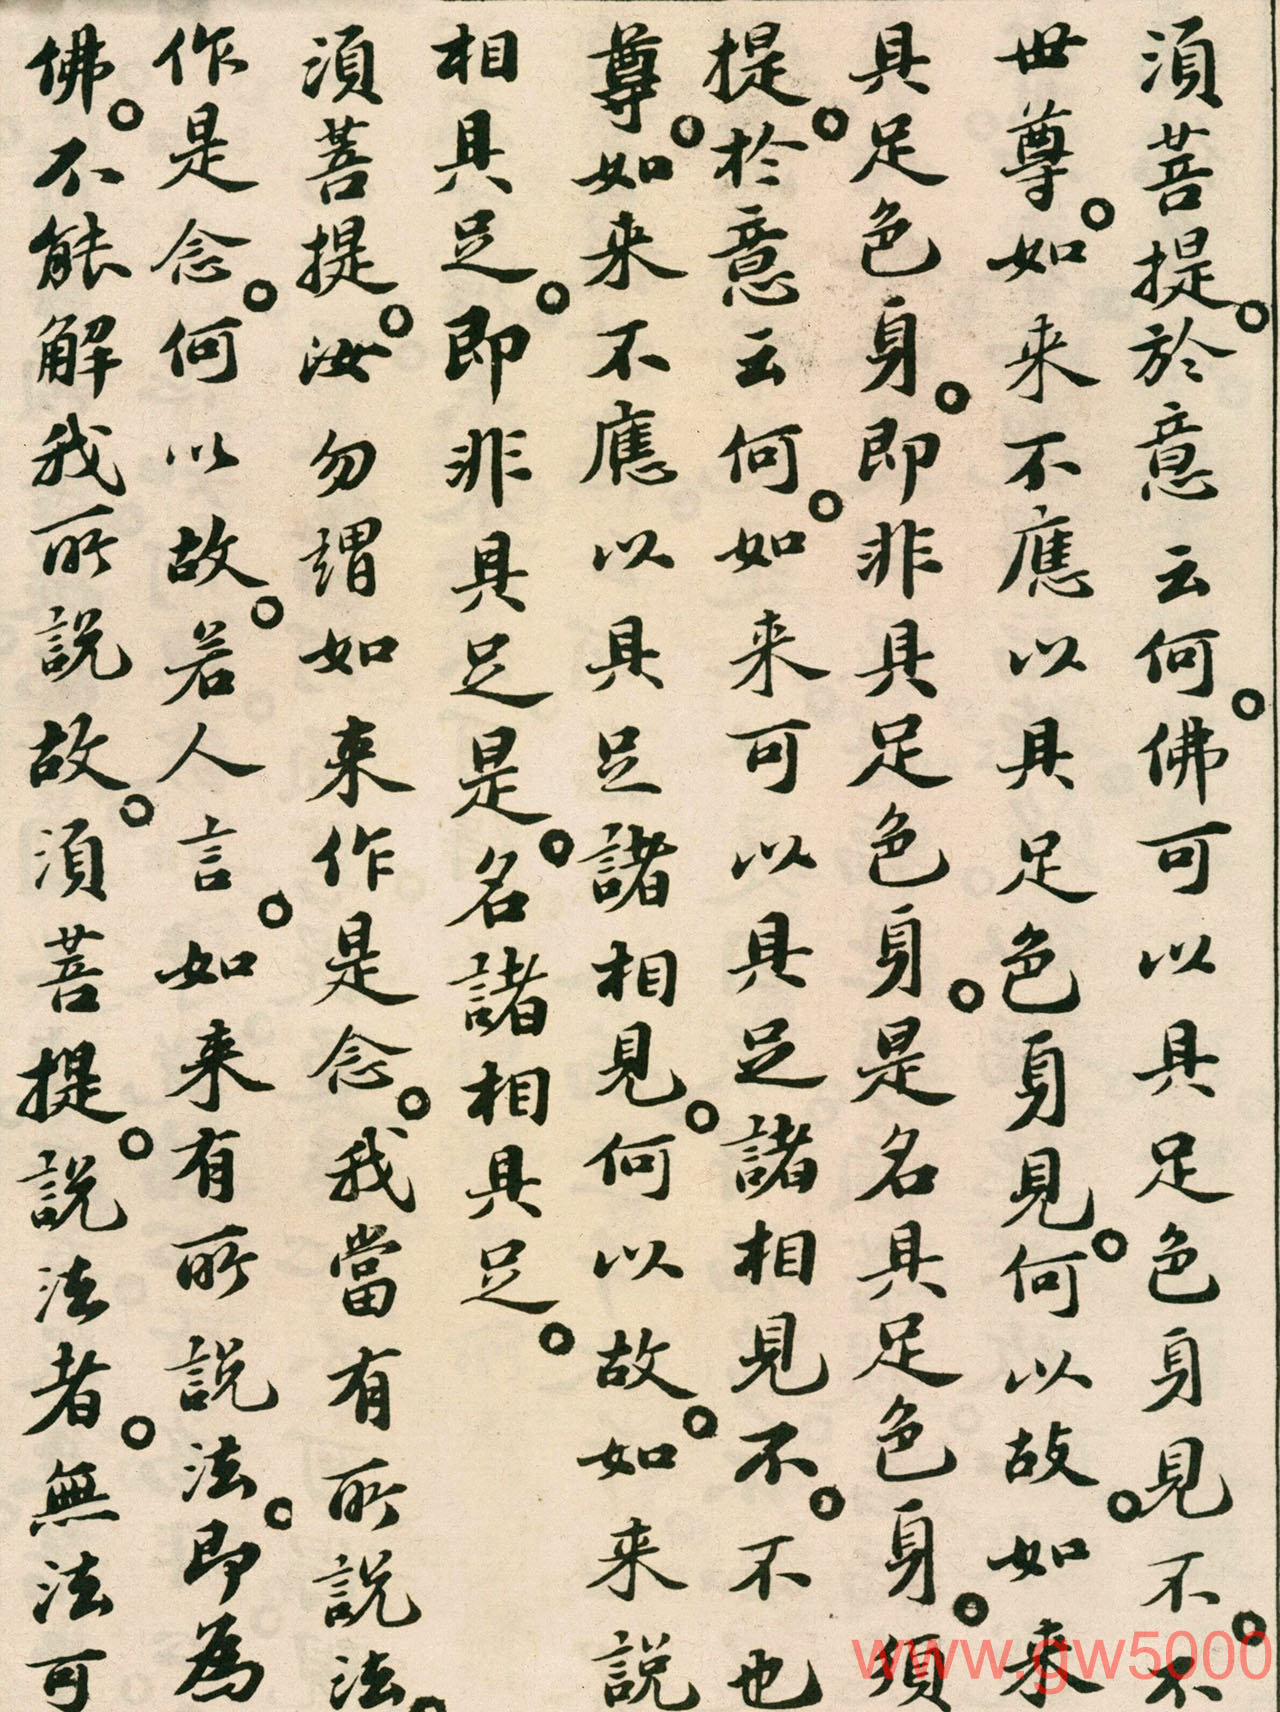 須菩提。於意云何。佛可以具足色身見不。不
世尊。如來不應以具足色身見。何以故。如來
具足色身。即非具足色身。是名具足色身。須
提。於意云何。如來可以具足諸相見不。不也
尊。如來不應以具足諸相見。何以故。如來說
相具足。即非具足是。名諸相具足。
須菩提。汝勿謂如來作是念。我當有所說法。
作是念。何以故。若人言。如來有所說法。即為
佛。不能解我所說故。須菩提。說法者。無法可
www.gw5000